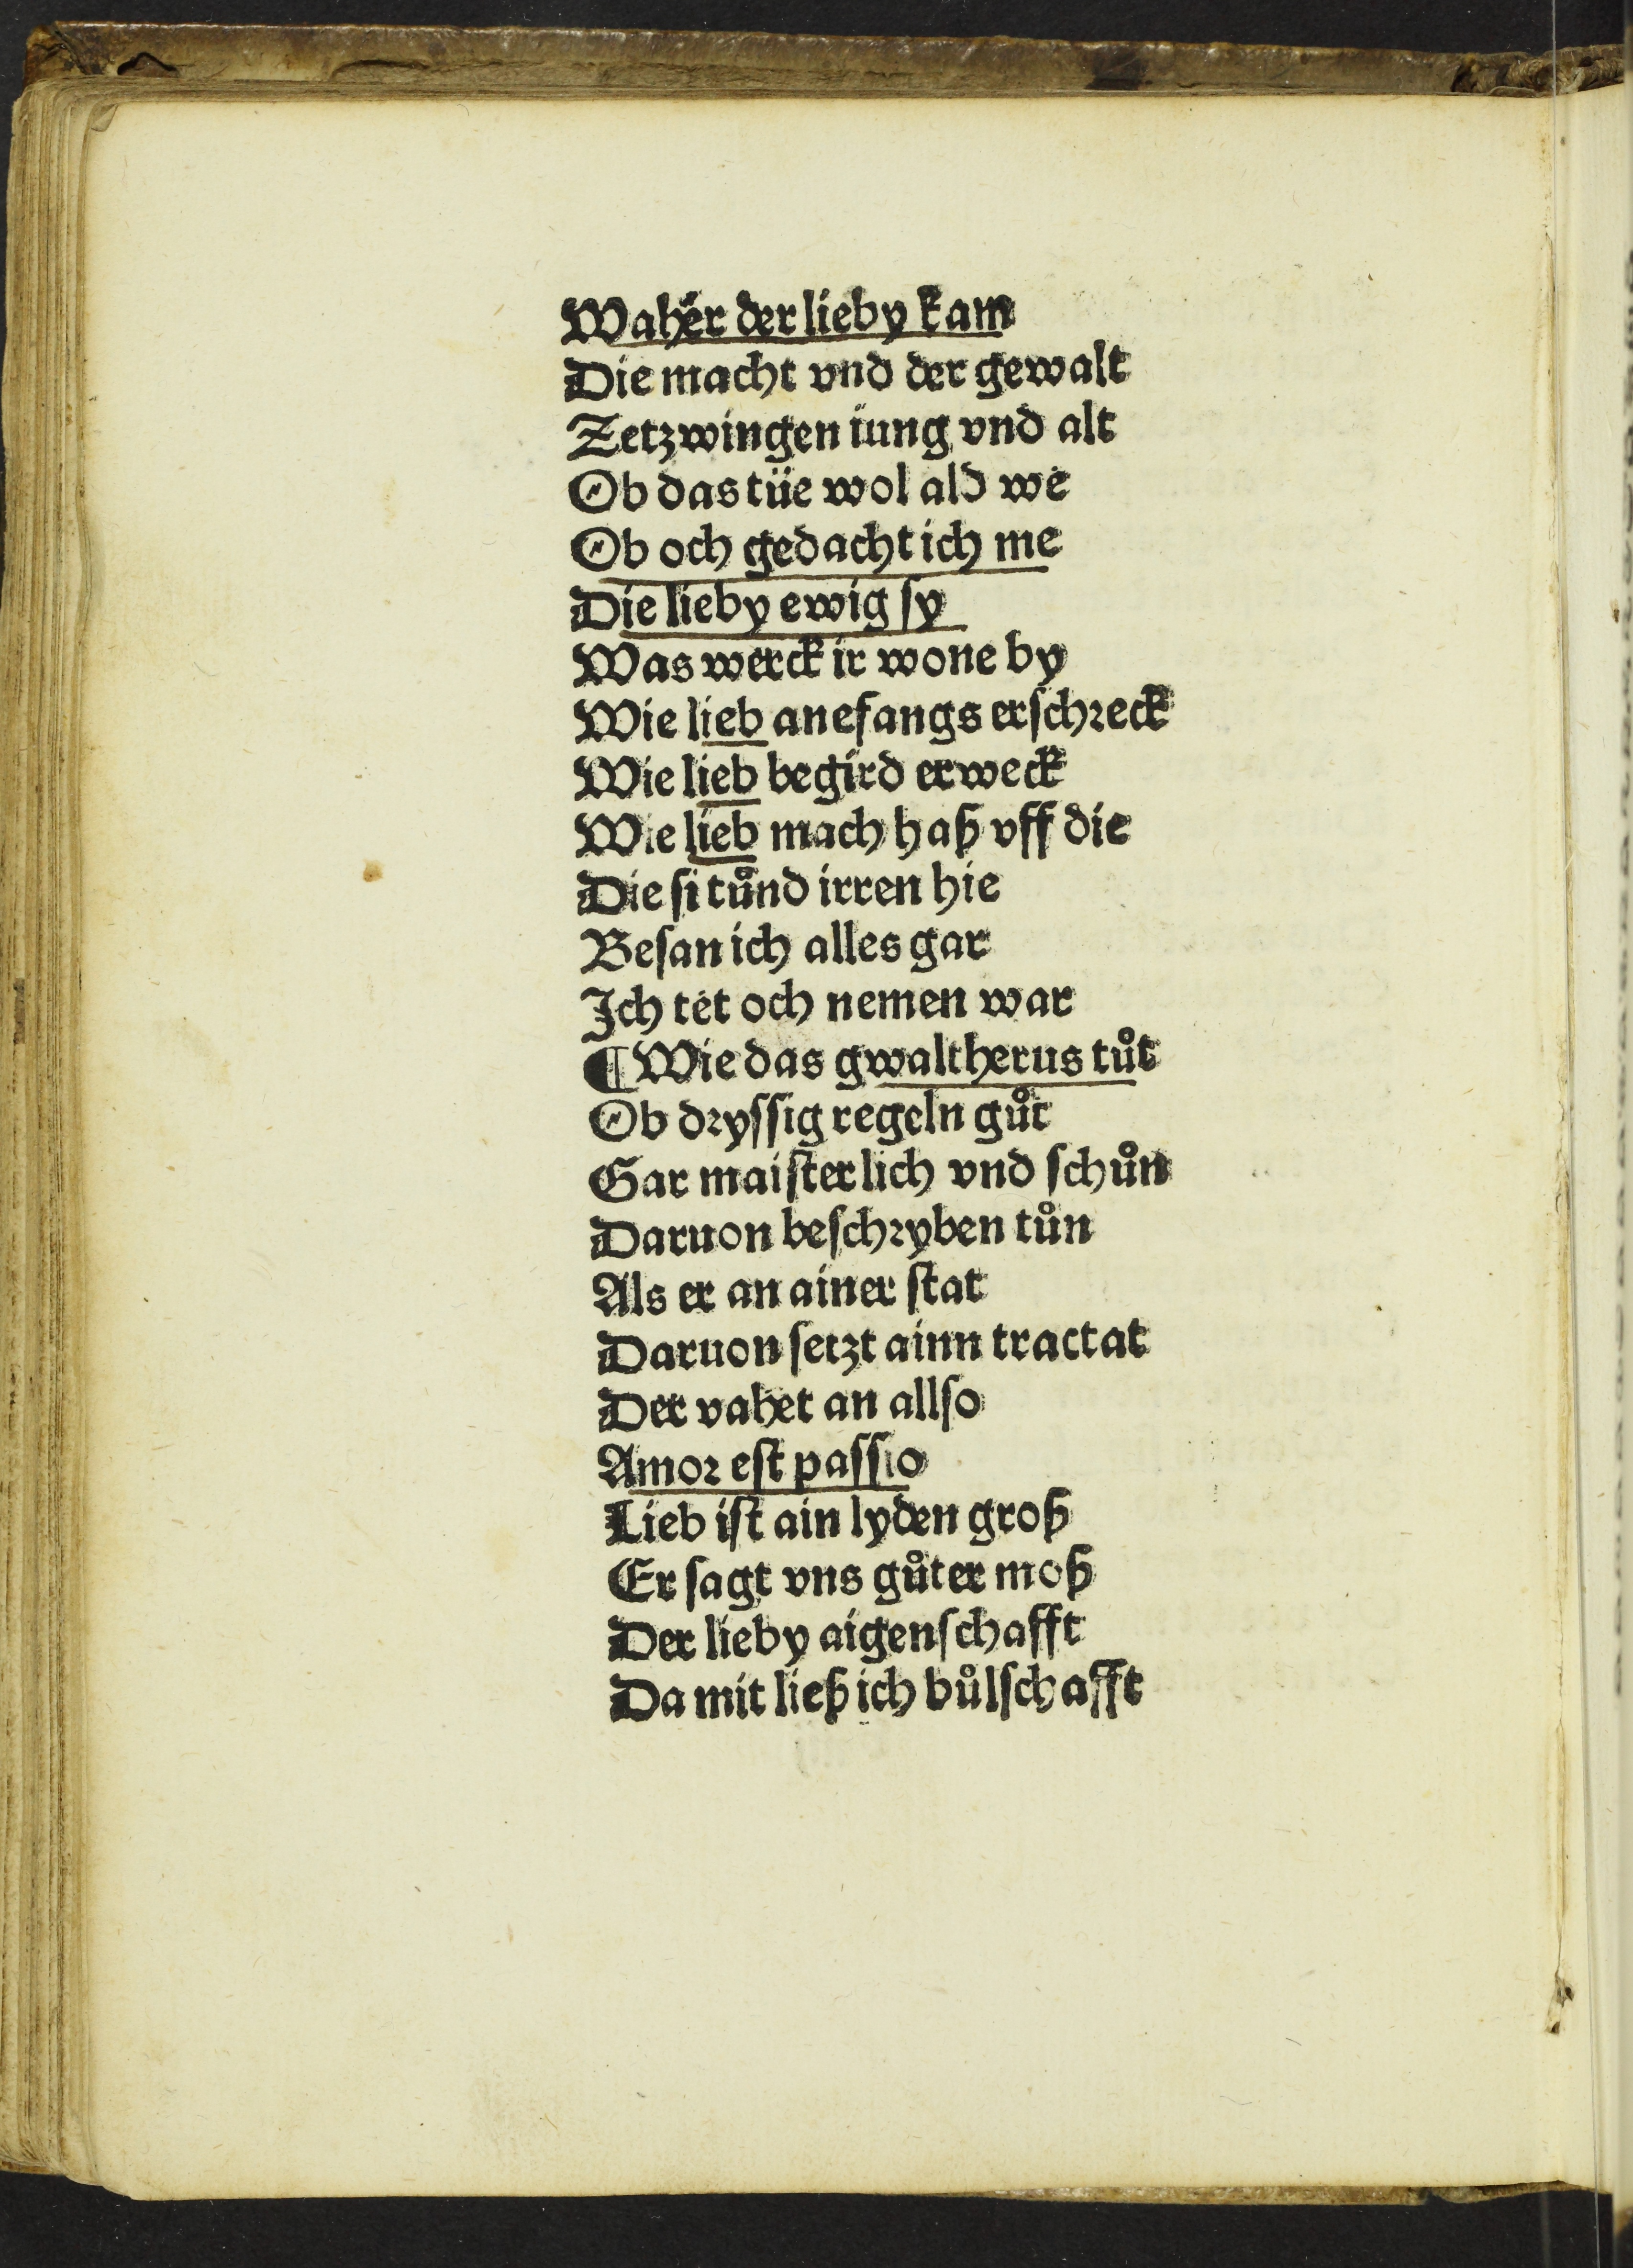 Wahër der lieby kam
Die macht vnd der gewalt
Zetzwingen iung vnd alt
Ob das tüe wol ald we
Ob och gedacht ich me
Die lieby ewig ſy
Was werck ir wone by
Wie lieb anefangs erſchꝛeck
Wie lieb begird erweck
Wie lieb mach haß vff die
Die ſi tůnd irren hie
Beſan ich alles gar
Ich tet och nemen war
¶ Wie das gwaltherus tůt
Ob dꝛyſſig regeln gůt
Gar maiſterlich vnd ſchůn
Daruon beſchꝛyben tůn
Als er an ainer ſtat
Daruon ſetzt ainn tractat
Der vahet an allſo
Amoꝛ eſt paſſio
Lieb iſt ain lyden groß
Er ſagt vns gůter moß
Der lieby aigenſchafft
Da mit ließ ich bůlſchafft